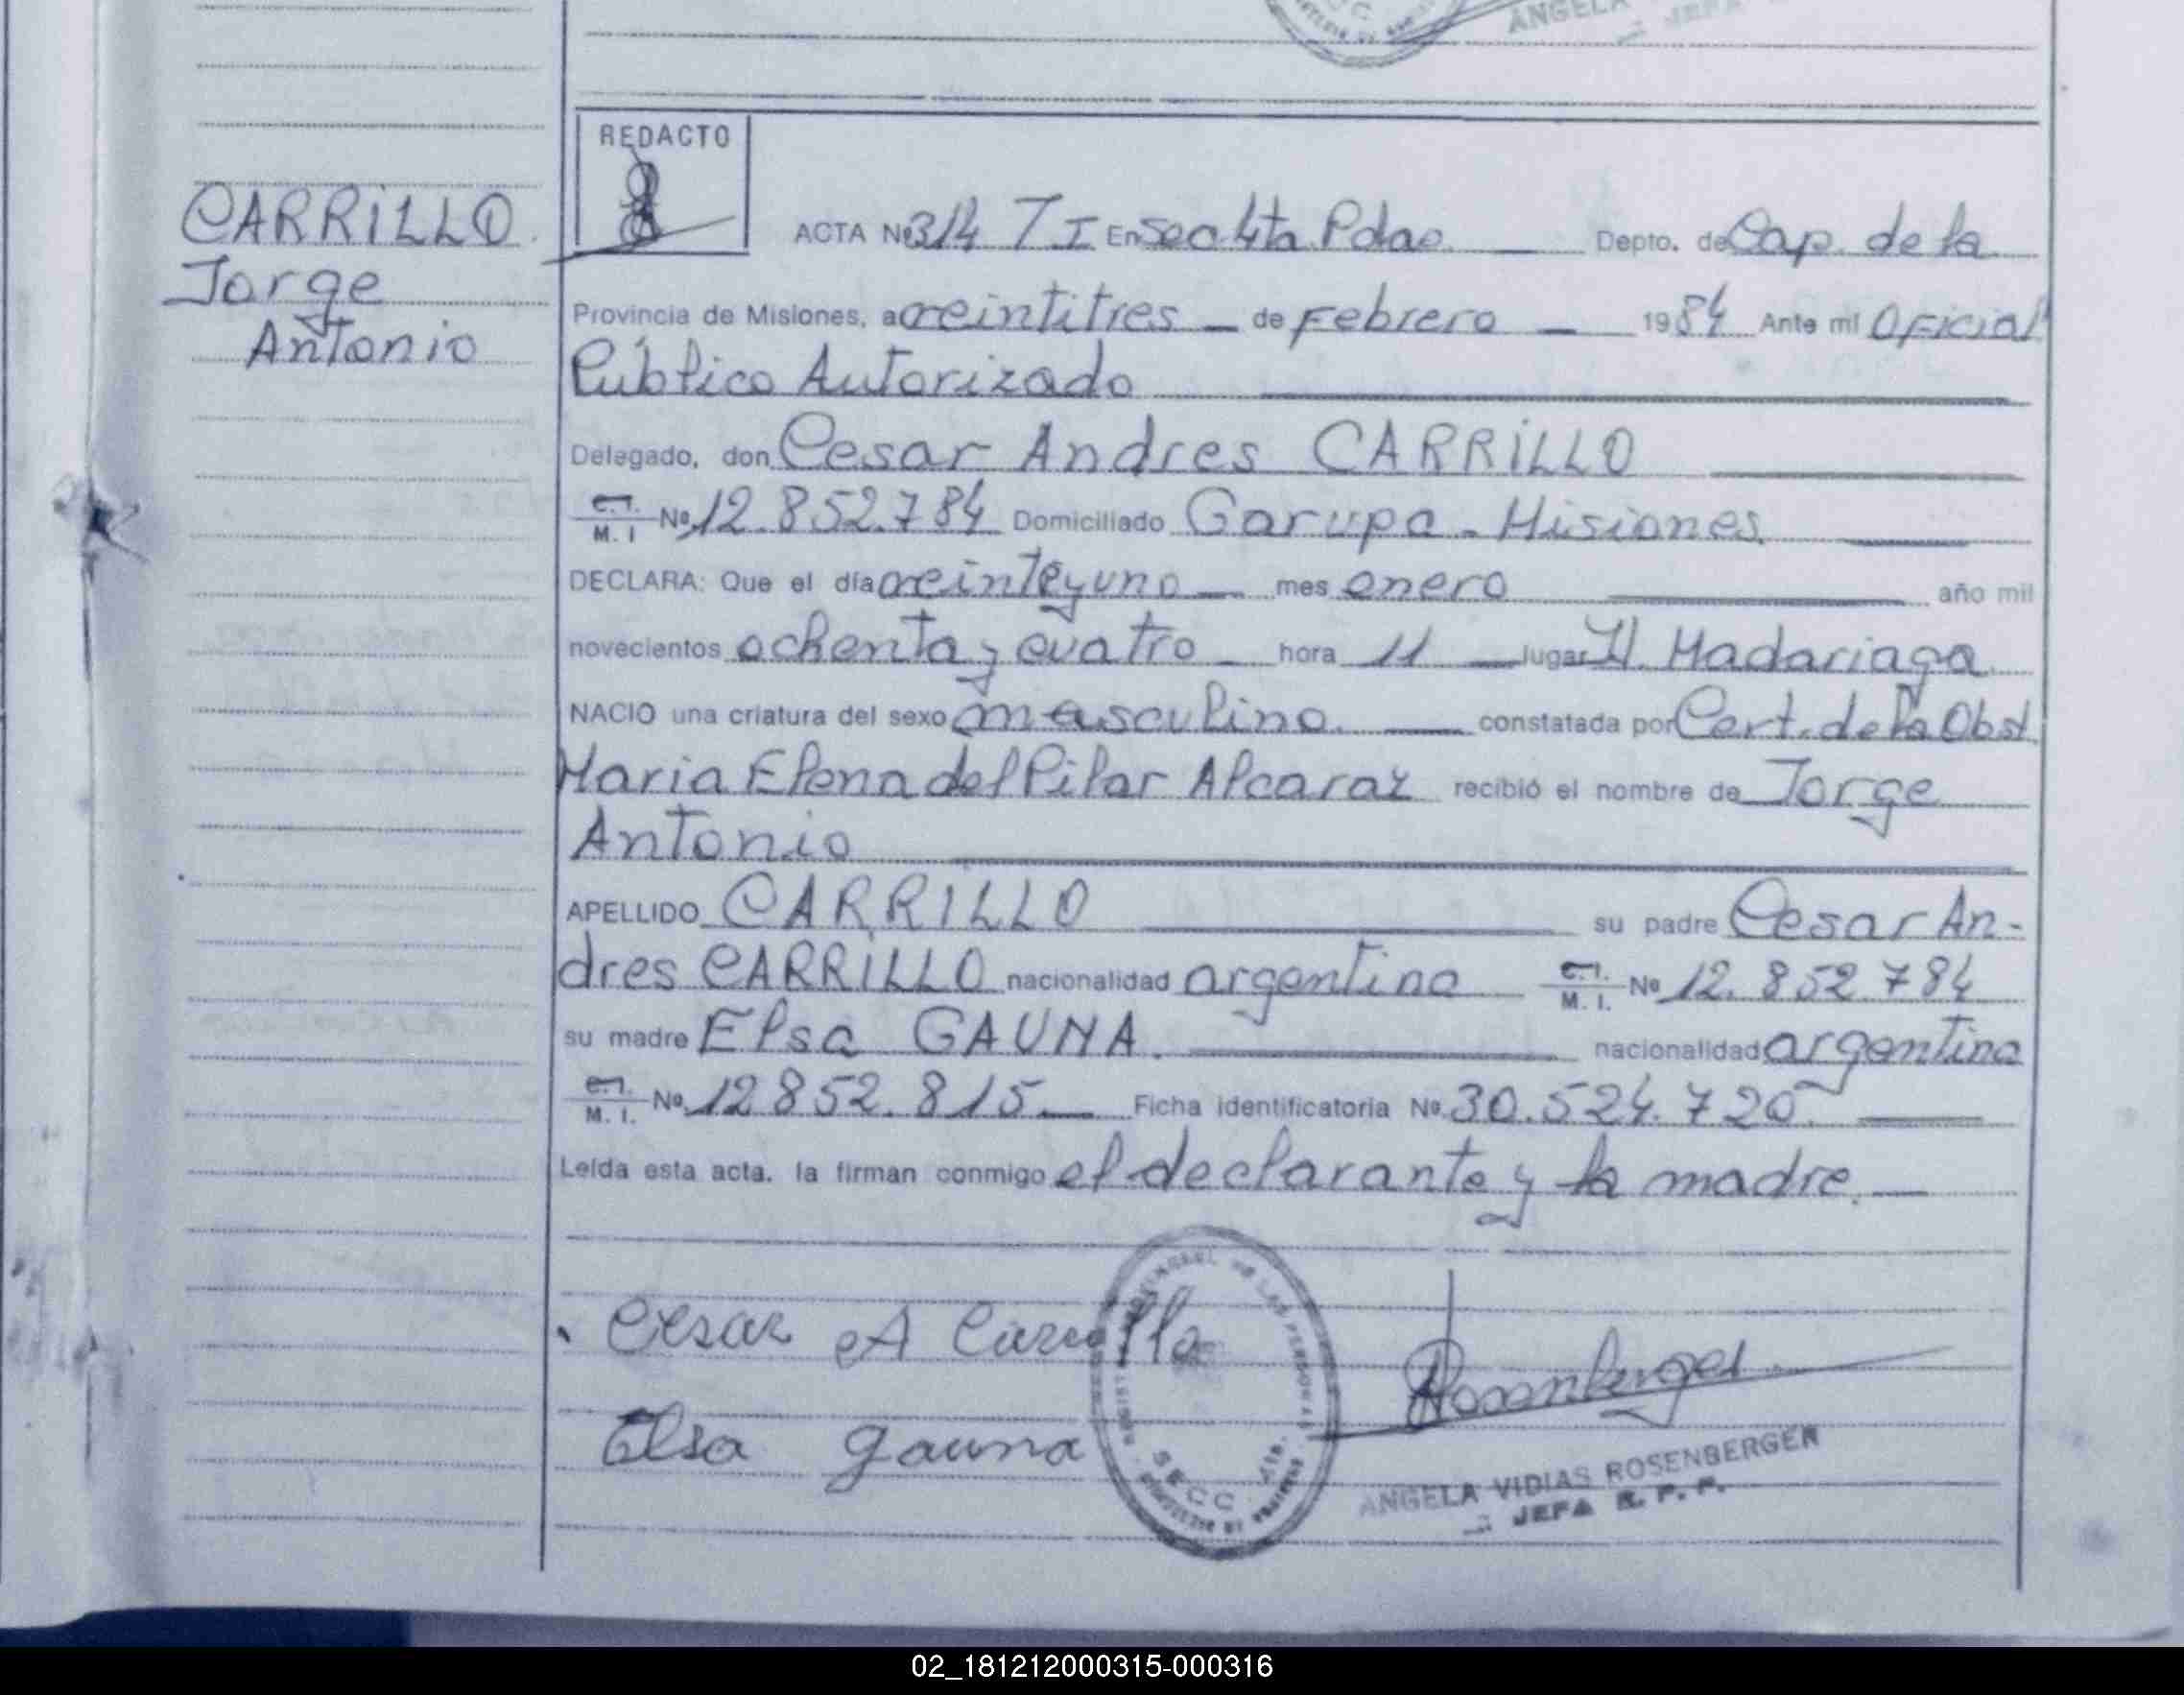 ANGELA
JEFA
REDACTO
CARRILLO
Jorge
Antonio
ACTA Nº 314 T I En Secc 4ta Pdas Depto. de Cap. de la
Provincia de Misiones, a veintitres de Febrero 1984 Ante mi Oficial
Público Autorizado
Delegado, don Cesar Andres CARRILLO
C.I. M. I Nº 12.852.784 Domiciliado Garupa - Misiones
DECLARA: Que el día veinteyuno mes enero año mil
novecientos ochenta y cuatro hora 11 lugar H. Madariaga
NACIO una criatura del sexo masculino. constatada por Cert. de la Obst.
Maria Elena del Pilar Alcaraz recibió el nombre de Jorge
Antonio
APELLIDO CARRILLO su padre Cesar An-
dres CARRILLO nacionalidad argentina C.I. M. I. Nº 12.852.784
su madre Elsa GAUNA. nacionalidad argentina
C.I. M. I. Nº 12.852.815 Ficha identificatoria Nº 30.524.720
Leída esta acta, la firman conmigo el declarante y la madre.
Cesar A Carrillo
Rosenberger
Elsa Gauna
DE LAS PERSONAS
SECC. 4ta.
ANGELA VIDIAS ROSENBERGER
JEFA R. P. P.
02_181212000315-000316